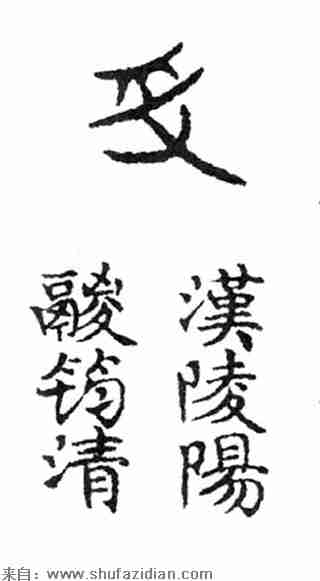 漢陵陽
鬷筠清
来自：www.shufazidian.com